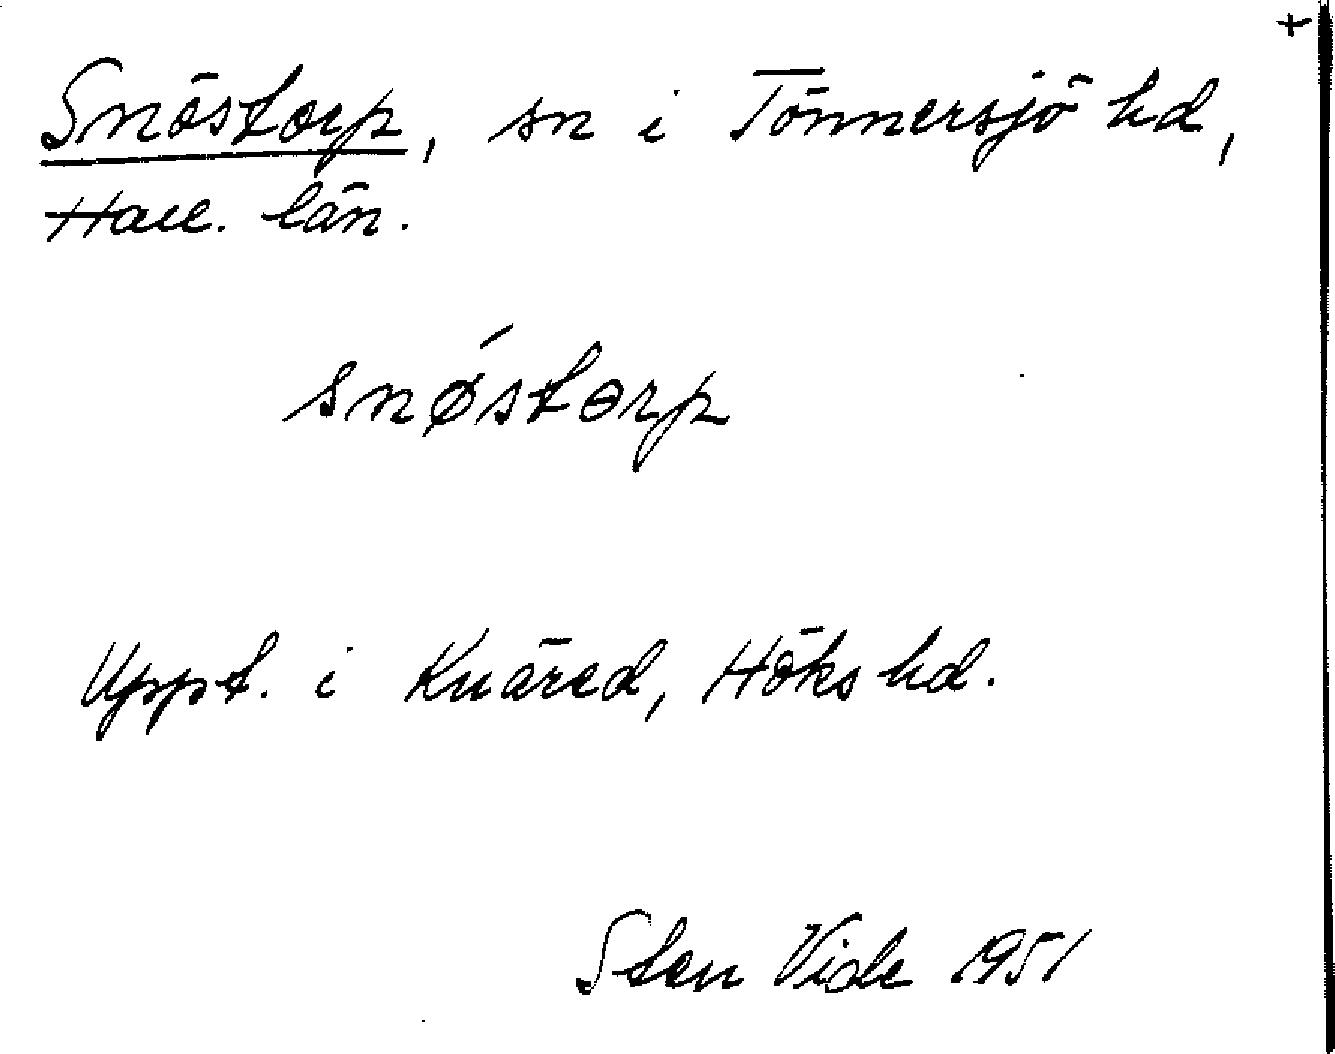 +
Snöstorp, sn i Tönnersjö hd,
Hall. län.
snǿstɵrp
Uppt. i Knäred, Höks hd.
Sten Vide 1951